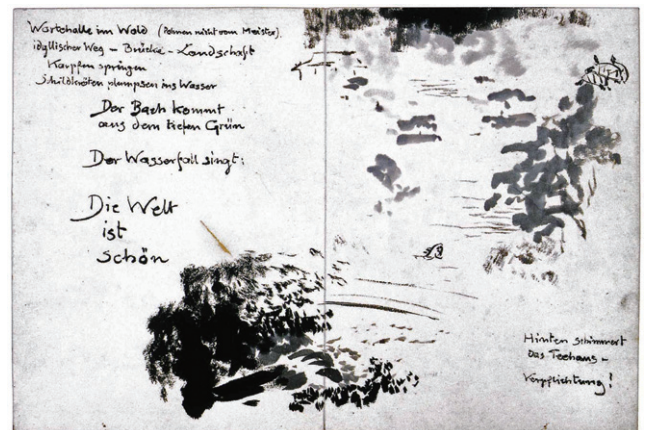 Wartehalle im Wald (Formen nicht vom Meister).
idyllischer Weg – Brücke – Landschaft
Karpfen springen
Schildkröten plumpsen ins Wasser
Der Bach kommt
aus dem tiefen Grün
Der Wasserfall singt:
Die Welt
ist
schön
Hinten schimmert
das Teehaus –
Verpflichtung!